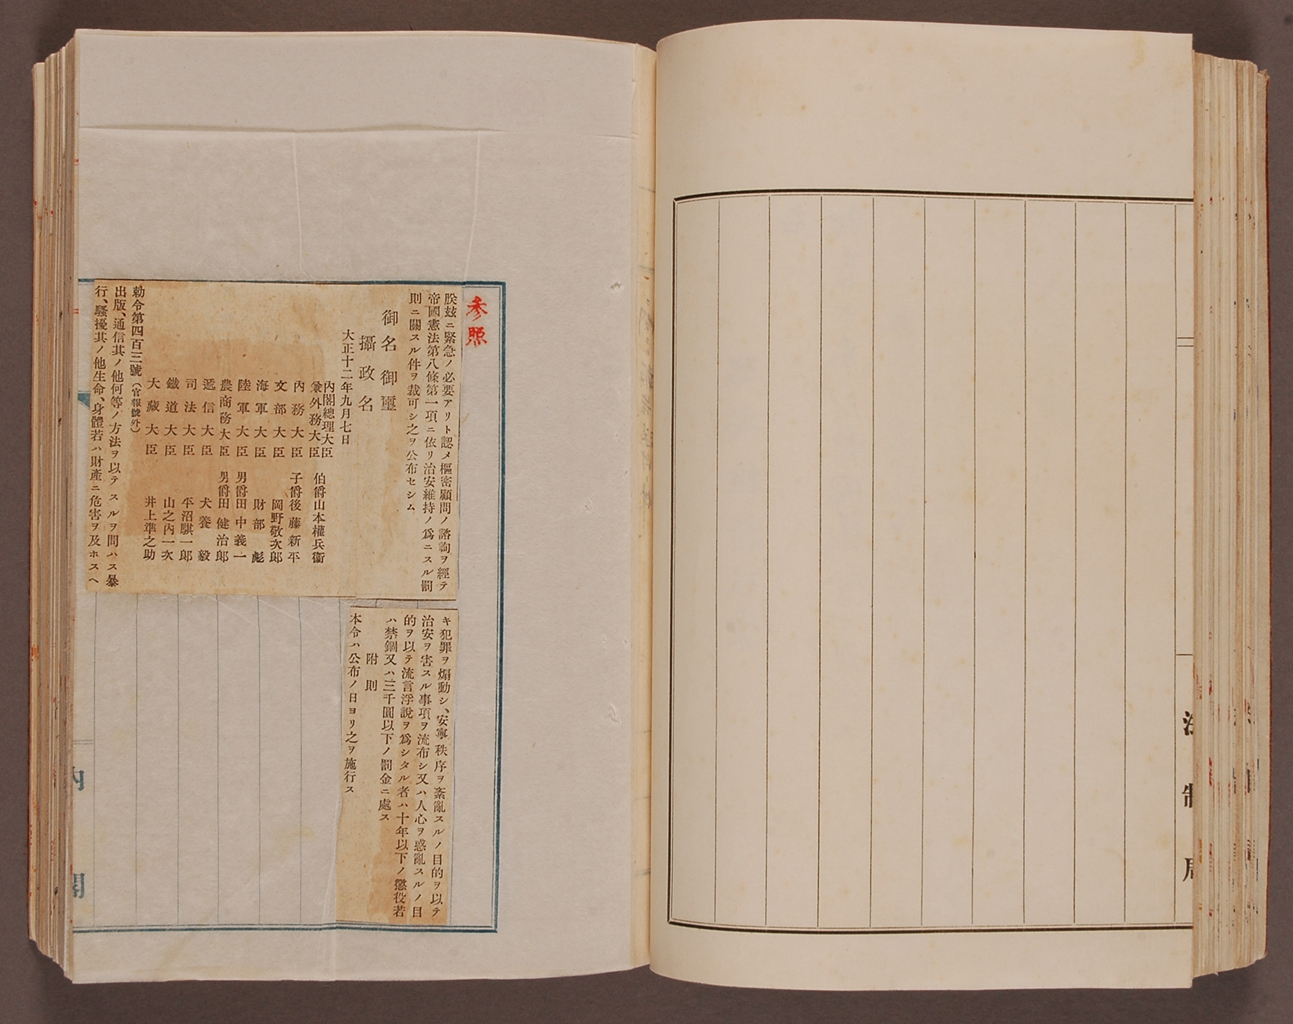 法制局
参照
朕玆ニ緊急ノ必要アリト認メ樞密顧問ノ諮詢ヲ經テ
帝國憲法第八條第一項ニ依リ治安維持ノ爲ニスル罰
則ニ關スル件ヲ裁可シ之ヲ公布セシム
御名御璽
攝政名
大正十二年九月七日
內閣總理大臣
兼外務大臣 伯爵山本權兵衞
內務大臣 子爵後藤新平
文部大臣 岡野敬次郎
海軍大臣 財部彪
陸軍大臣 男爵田中義一
農商務大臣 男爵田健治郎
遞信大臣 犬養毅
司法大臣 平沼騏一郎
鐵道大臣 山之內一次
大藏大臣 井上準之助
勅令第四百三號(官報號外)
出版、通信其ノ他何等ノ方法ヲ以テスルヲ問ハス暴
行、騷擾其ノ他生命、身體若ハ財產ニ危害ヲ及ホスヘ
キ犯罪ヲ煽動シ、安寧秩序ヲ紊亂スルノ目的ヲ以テ
治安ヲ害スル事項ヲ流布シ又ハ人心ヲ惑亂スルノ目
的ヲ以テ流言浮說ヲ爲シタル者ハ十年以下ノ懲役若
ハ禁錮又ハ三千圓以下ノ罰金ニ處ス
附則
本令ハ公布ノ日ヨリ之ヲ施行ス
內閣